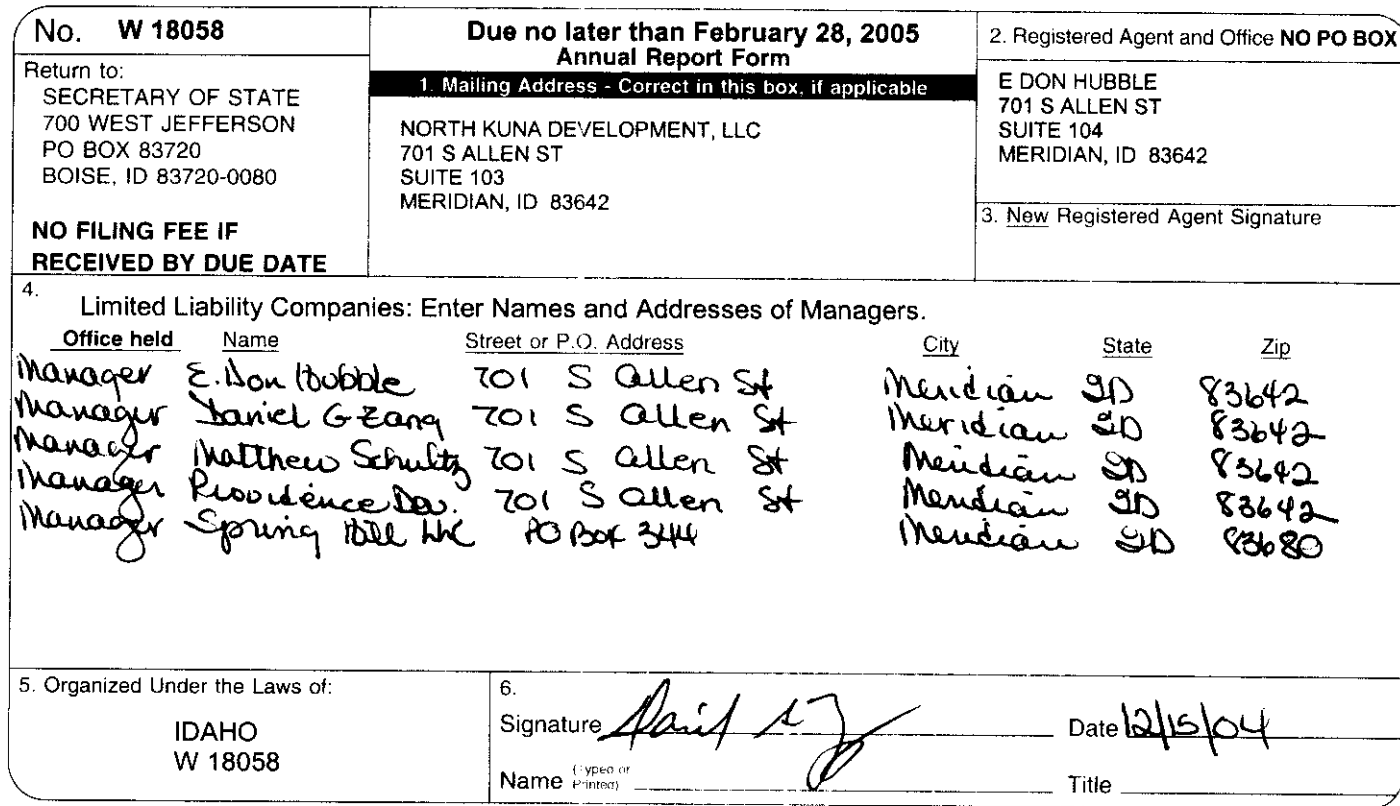 No. W 18058
Return to:
SECRETARY OF STATE
700 WEST JEFFERSON
PO BOX 83720
BOISE, ID 83720-0080
NO FILING FEE IF
RECEIVED BY DUE DATE
Due no later than February 28, 2005
Annual Report Form
1. Mailing Address - Correct in this box, if applicable
NORTH KUNA DEVELOPMENT, LLC
701 S ALLEN ST
SUITE 103
MERIDIAN, ID 83642
2. Registered Agent and Office NO PO BOX
E DON HUBBLE
701 S ALLEN ST
SUITE 104
MERIDIAN, ID 83642
3. New Registered Agent Signature
4.
Limited Liability Companies: Enter Names and Addresses of Managers.
Office held Name Street or P.O. Address City State Zip
Manager E. Don Hubble 701 S Allen St Meridian ID 83642
Manager Daniel G Zang 701 S Allen St Meridian ID 83642
Manager Matthew Schultz 701 S Allen St Meridian ID 83642
Manager Providence Dev. 701 S Allen St Meridian ID 83642
Manager Spring Hill LLC PO Box 344 Meridian ID 83680
5. Organized Under the Laws of:
IDAHO
W 18058
6.
Signature Date 12/15/04
Name (Typed or Printed) Title